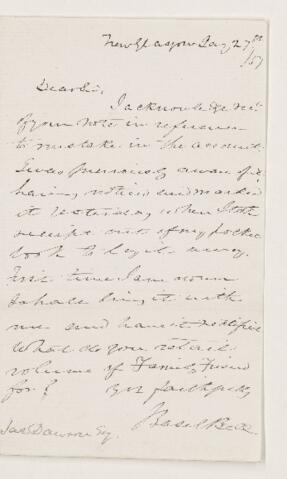 New Glasgow 27th
/57
Dear Sir,
I acknowledge
of your note in reference
to mistake in the account.
I was previously aware of it
having noticed and marked
it yesterday when I took
receipt out of my pocket
book to lay it away.
time I am down
I shall bring it with
me and have it rectified
What do you retail
volume of Family Friend
for? Yrs faithfully
Basil Bell
Jas Dawson Esq.